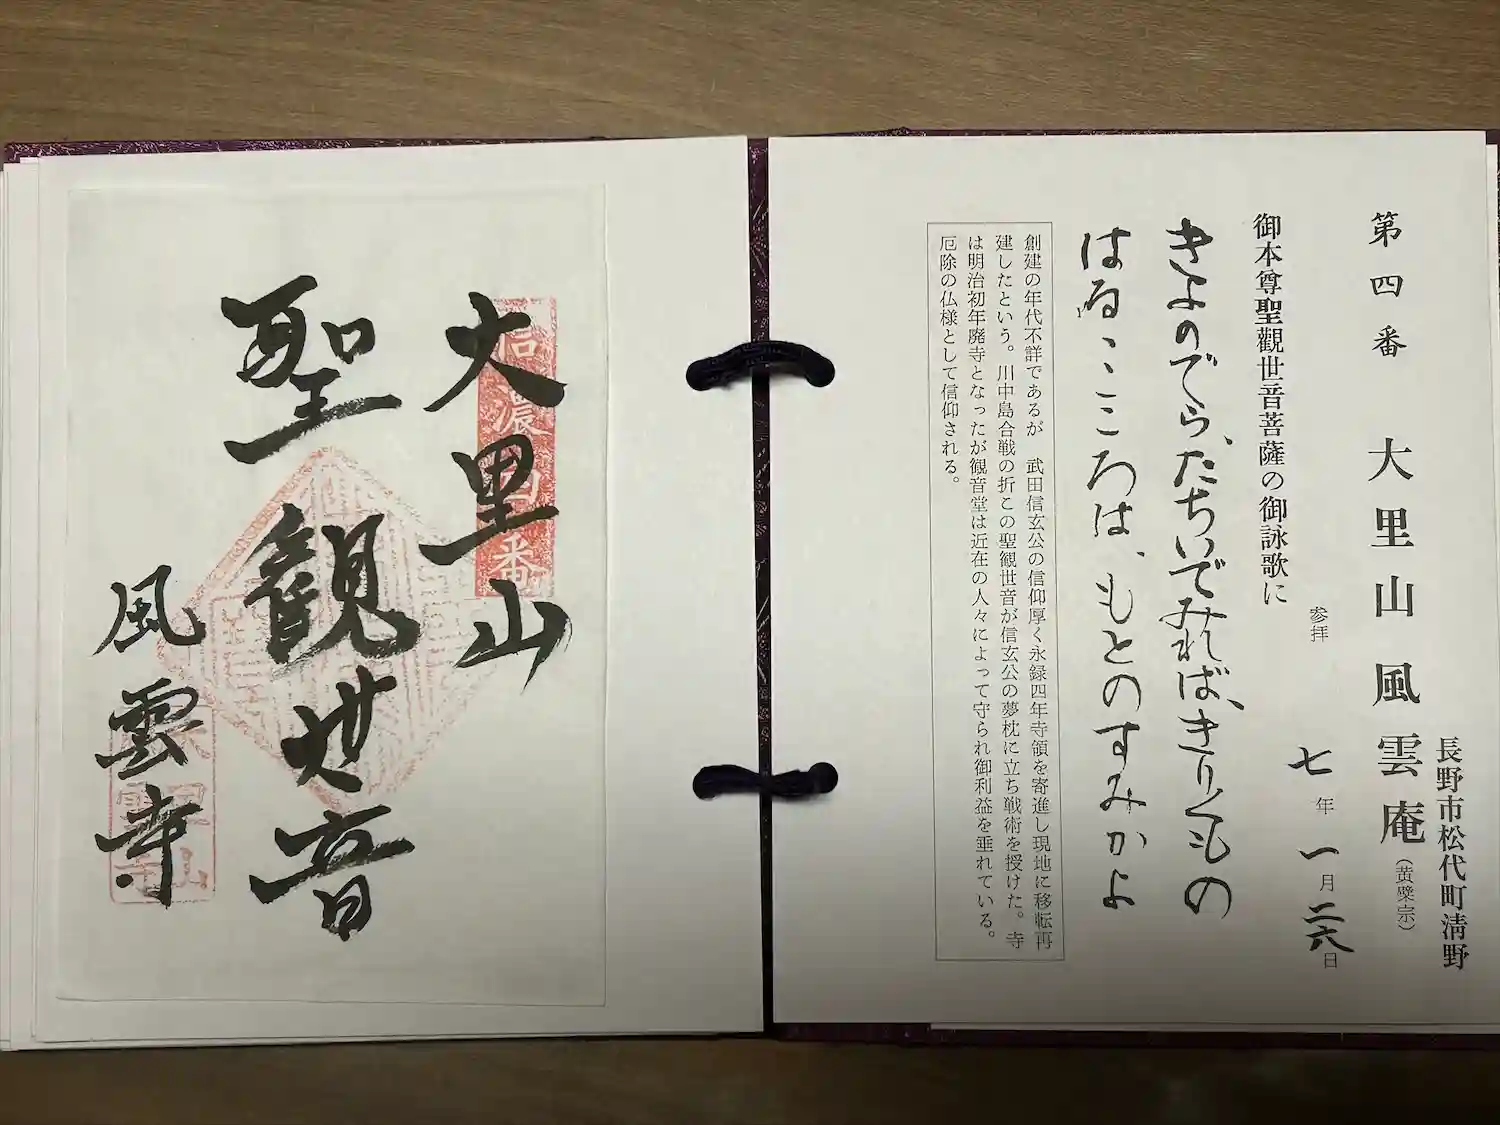 長野市松代町清野
第四番 大里山風雲庵(黄檗宗)
参拝 七年一月二六日
御本尊聖觀世音菩薩の御詠歌に
きよのでら、たちいでみれば、きりくもの
はるゝこころは、もとのすみかよ
創建の年代不詳であるが 武田信玄公の信仰厚く永録四年寺領を寄進し現地に移転再
建したという。川中島合戦の折この聖観世音が信玄公の夢枕に立ち戦術を授けた。寺
は明治初年廃寺となったが観音堂は近在の人々によって守られ御利益を垂れている。
厄除の仏様として信仰される。
信濃四番
大里山
聖観世音
風雲寺